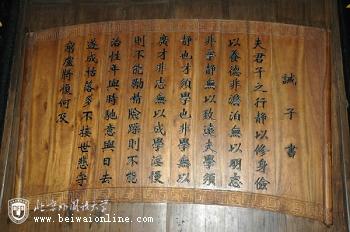 誡子書
夫君子之行靜以修身儉
以養德非澹泊無以明志
非寧靜無以致遠夫學須
靜也才須學也非學無以
廣才非志無以成學淫慢
則不能勵精險躁則不能
治性年與時馳意與日去
遂成枯落多不接世悲守
窮廬將復何及
北京外国语大学
www.beiwaionline.com